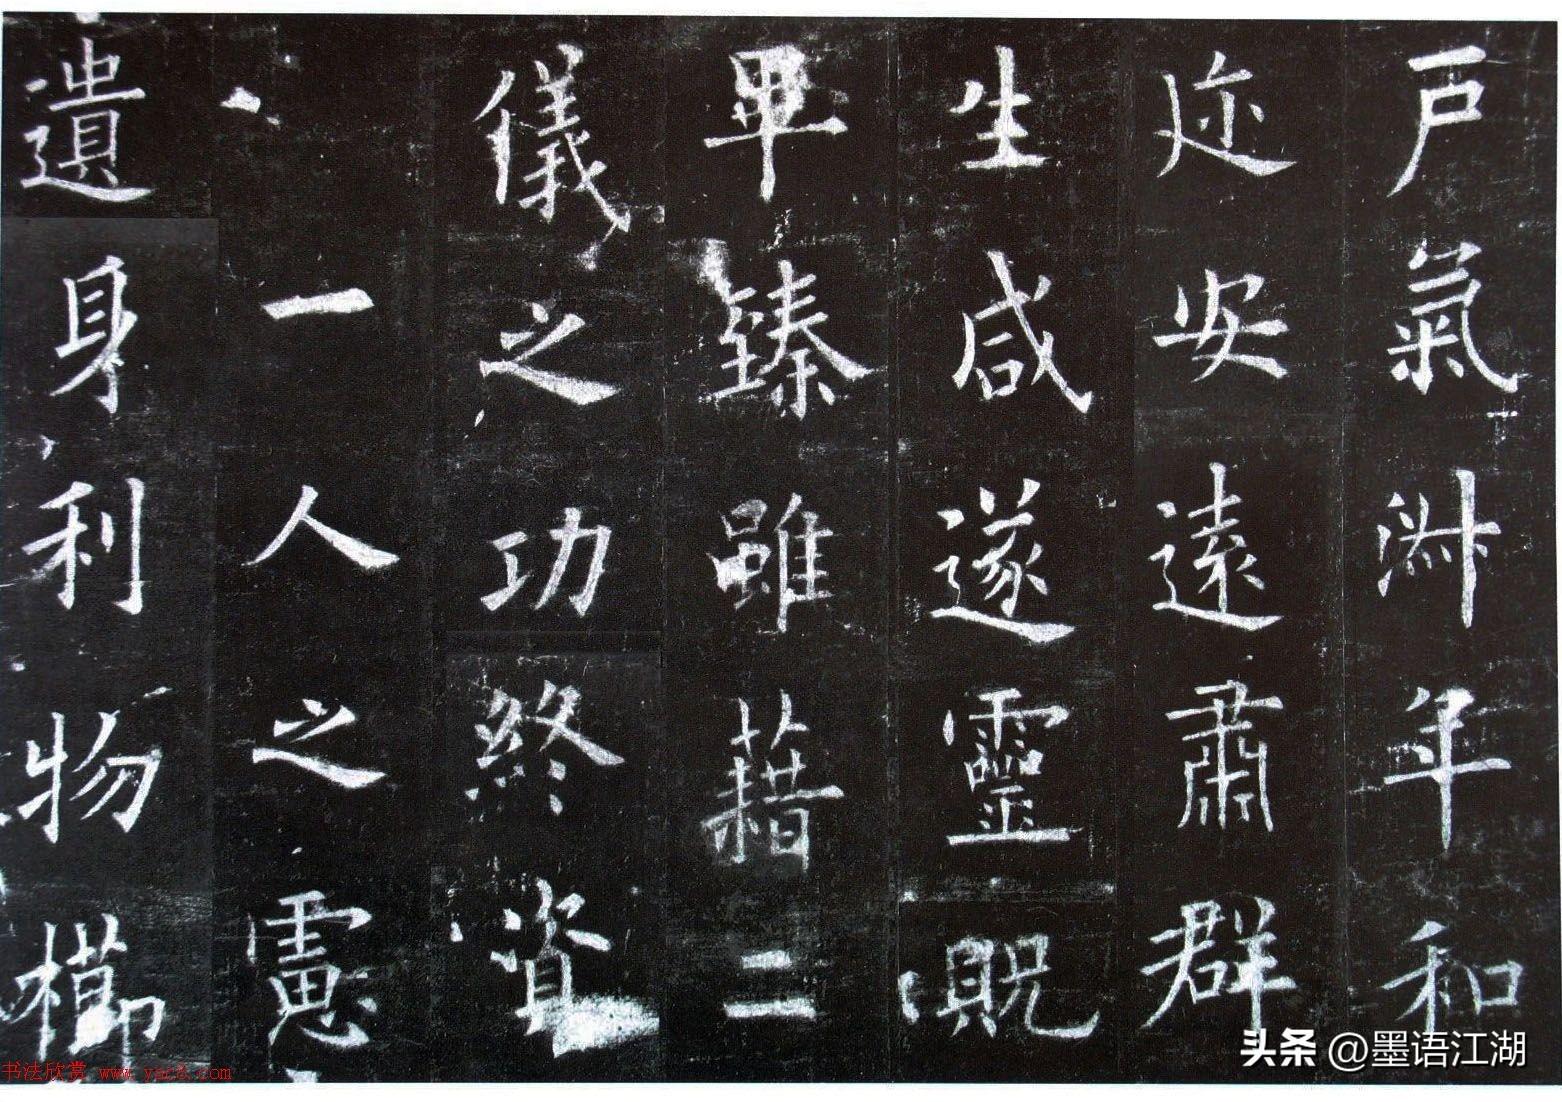 戶氣淋年和
迩安遠肅群
生咸遂靈貺
畢臻雖藉二
儀之功終資
一人之慮
遺身利物櫛
头条 @墨语江湖
书法欣赏 www.yac8.com